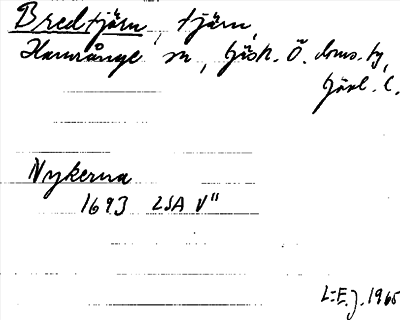 Bredtjärn, tjärn,
Hamrånge sn, Gästr. Ö. doms. hg,
Gävl. l.
Nykerna
1693 LSA V"
L:E.J. 1965